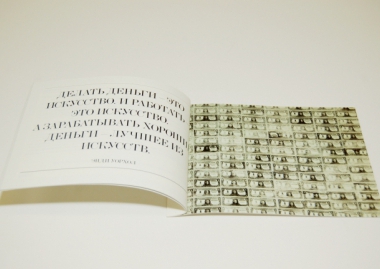 ДЕЛАТЬ ДЕНЬГИ – ЭТО
ИСКУССТВО, И РАБОТАТЬ –
ЭТО ИСКУССТВО,
А ЗАРАБАТЫВАТЬ ХОРОШИЕ
ДЕНЬГИ – ЛУЧШЕЕ ИЗ
ИСКУССТВ.
ЭНДИ УОРХОЛ